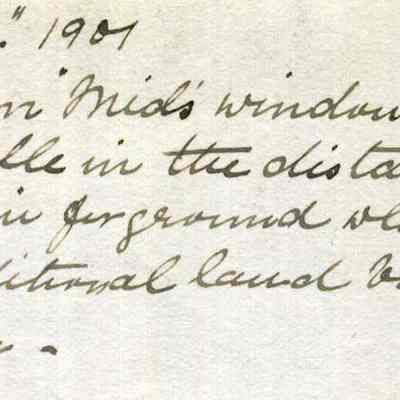 ." 1901
n "Mid's window
lle in the dista
in forground wh
ditional land b